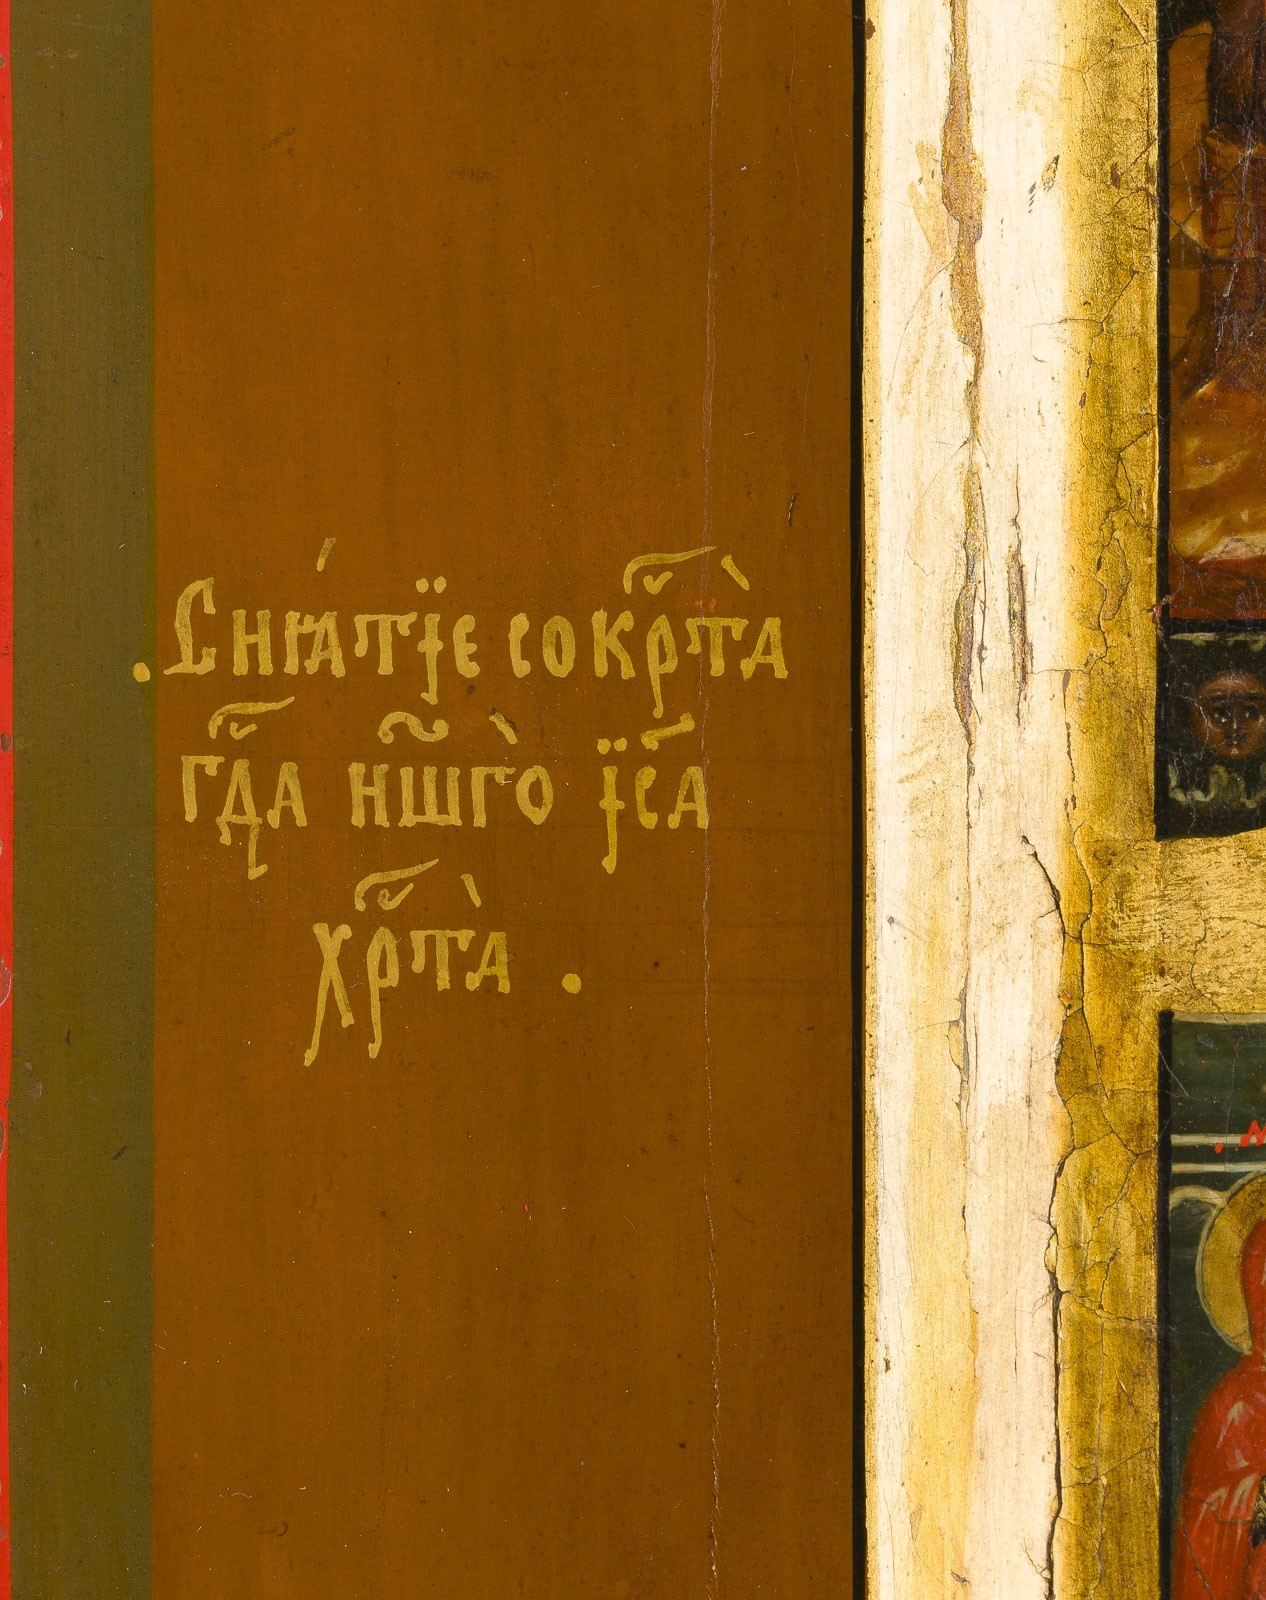 . Снꙗ́тїе со крⷭ҇та̀
гдⷭ҇а нш҃гѡ̀ їсⷭ҇а
хрⷭ҇та̀ .